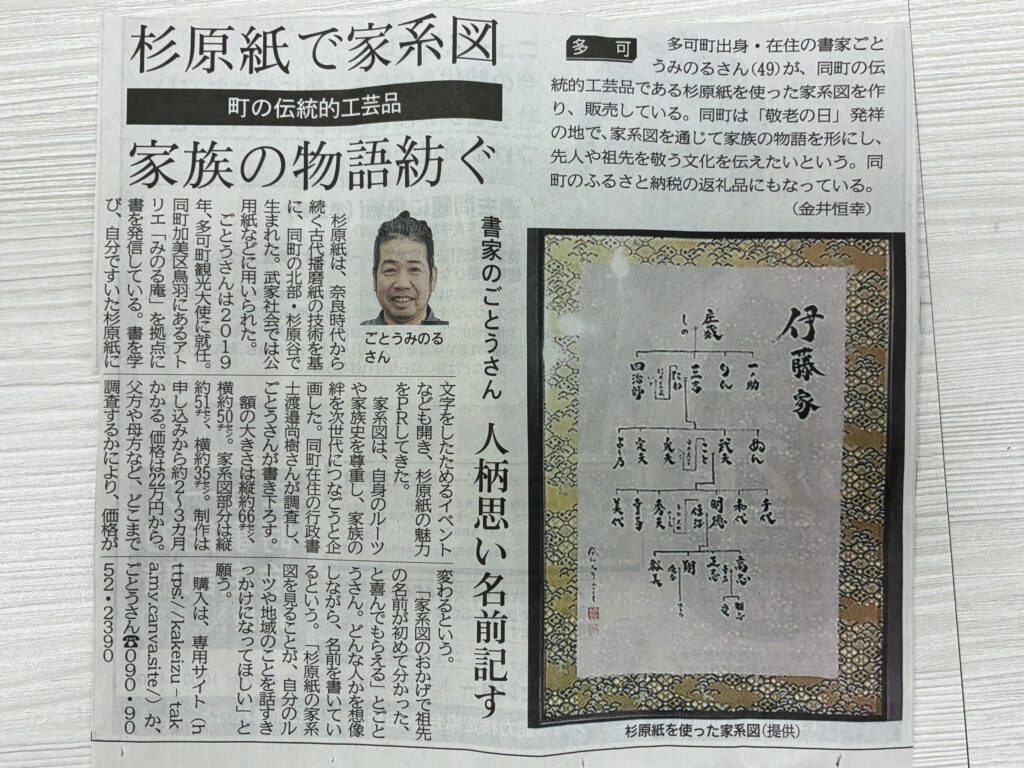 杉原紙で家系図
町の伝統的工芸品
家族の物語紡ぐ
多可
多可町出身・在住の書家ごと
うみのるさん(49)が、同町の伝
統的工芸品である杉原紙を使った家系図を作
り、販売している。同町は「敬老の日」発祥
の地で、家系図を通じて家族の物語を形にし、
先人や祖先を敬う文化を伝えたいという。同
町のふるさと納税の返礼品にもなっている。
（金井恒幸）
書家のごとうさん 人柄思い名前記す
ごとうみのる
さん
杉原紙は、奈良時代から
続く古代播磨紙の技術を基
に、同町の北部・杉原谷で
生まれた。武家社会では公
用紙などに用いられた。
ごとうさんは2019
年、多可町観光大使に就任。
同町加美区鳥羽にあるアト
リエ「みのる庵」を拠点に
書を発信している。書を学
び、自分ですいた杉原紙に
文字をしたためるイベント
なども開き、杉原紙の魅力
をPRしてきた。
家系図は、自身のルーツ
や家族史を尊重し、家族の
絆を次世代につなごうと企
画した。同町在住の行政書
士渡邉尚樹さんが調査し、
ごとうさんが書き下ろす。
額の大きさは縦約66㌢、
横約50㌢。家系図部分は縦
約51㌢、横約35㌢。制作は
申し込みから約2～3カ月
かかる。価格は22万円から。
父方や母方など、どこまで
調査するかにより、価格が
変わるという。
「家系図のおかげで祖先
の名前が初めて分かった、
と喜んでもらえる」とごと
うさん。どんな人かを想像
しながら、名前を書いてい
るという。「杉原紙の家系
図を見ることが、自分のル
ーツや地域のことを話すき
っかけになってほしい」と
願う。
購入は、専用サイト（h
ttps://kakeizu-tak
a.my.canva.site/）か、
ごとうさん☎090・90
52・2390
伊藤家
庄蔵
しの
一ノ助
りん
三吉
たね
四治郎
ぬん
定夫
美代
千代
和代
明徳
高志
正志
翔
杉原紙を使った家系図(提供)